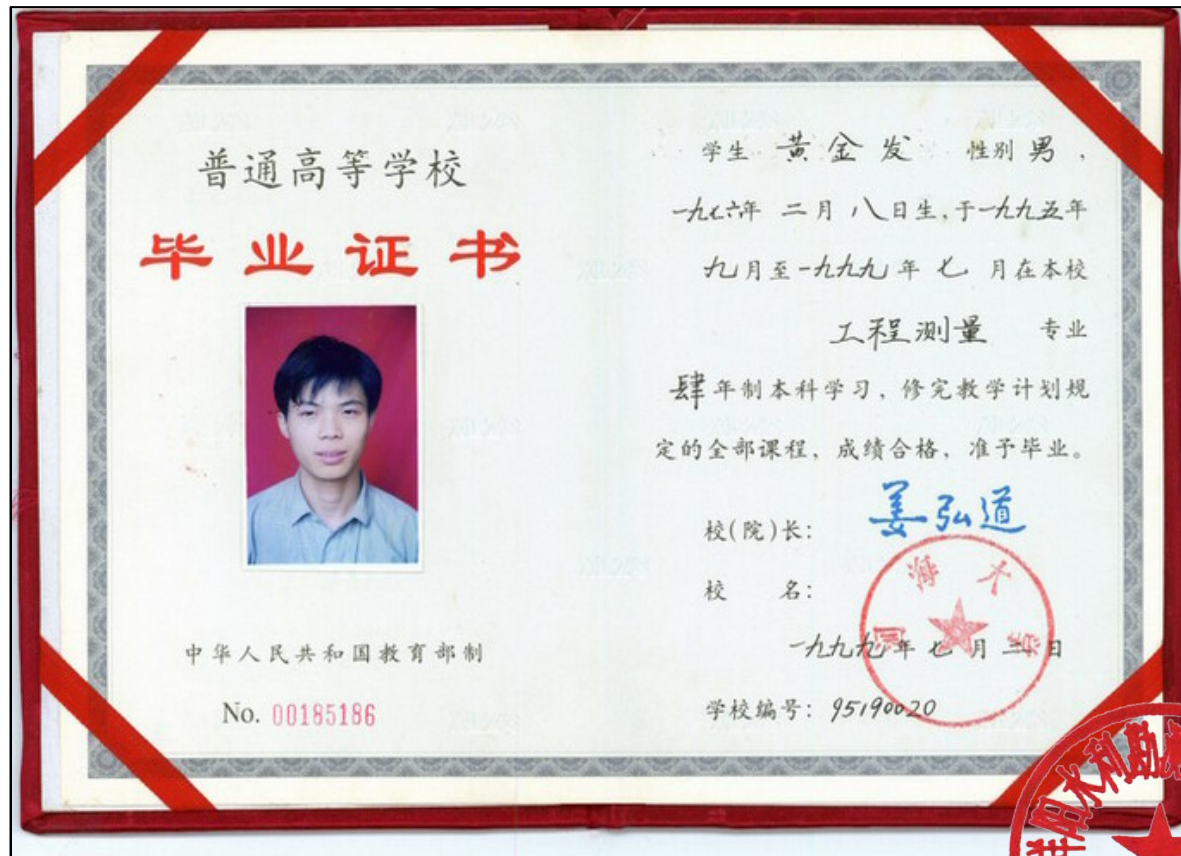 普通高等学校
毕业证书
中华人民共和国教育部制
No. 00185186
学生 黄金发 性别 男,
一九七六年 二月 八日生,于一九九五年
九月至一九九九年 七 月在本校
工程测量 专业
肆年制本科学习,修完教学计划规
定的全部课程,成绩合格,准予毕业。
校(院)长: 姜弘道
校 名:
河海大学
一九九九年七月二日
学校编号: 95190020
水利勘